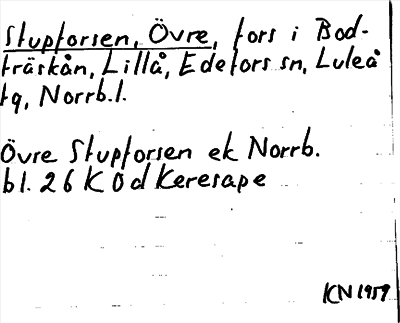 Stupforsen, Övre, fors i Bod-
träskån, Lillå, Edefors sn, Luleå
tg, Norrb.l.
Övre Stupforsen ek Norrb.
bl. 26 K 0d Keresape
KN 1959